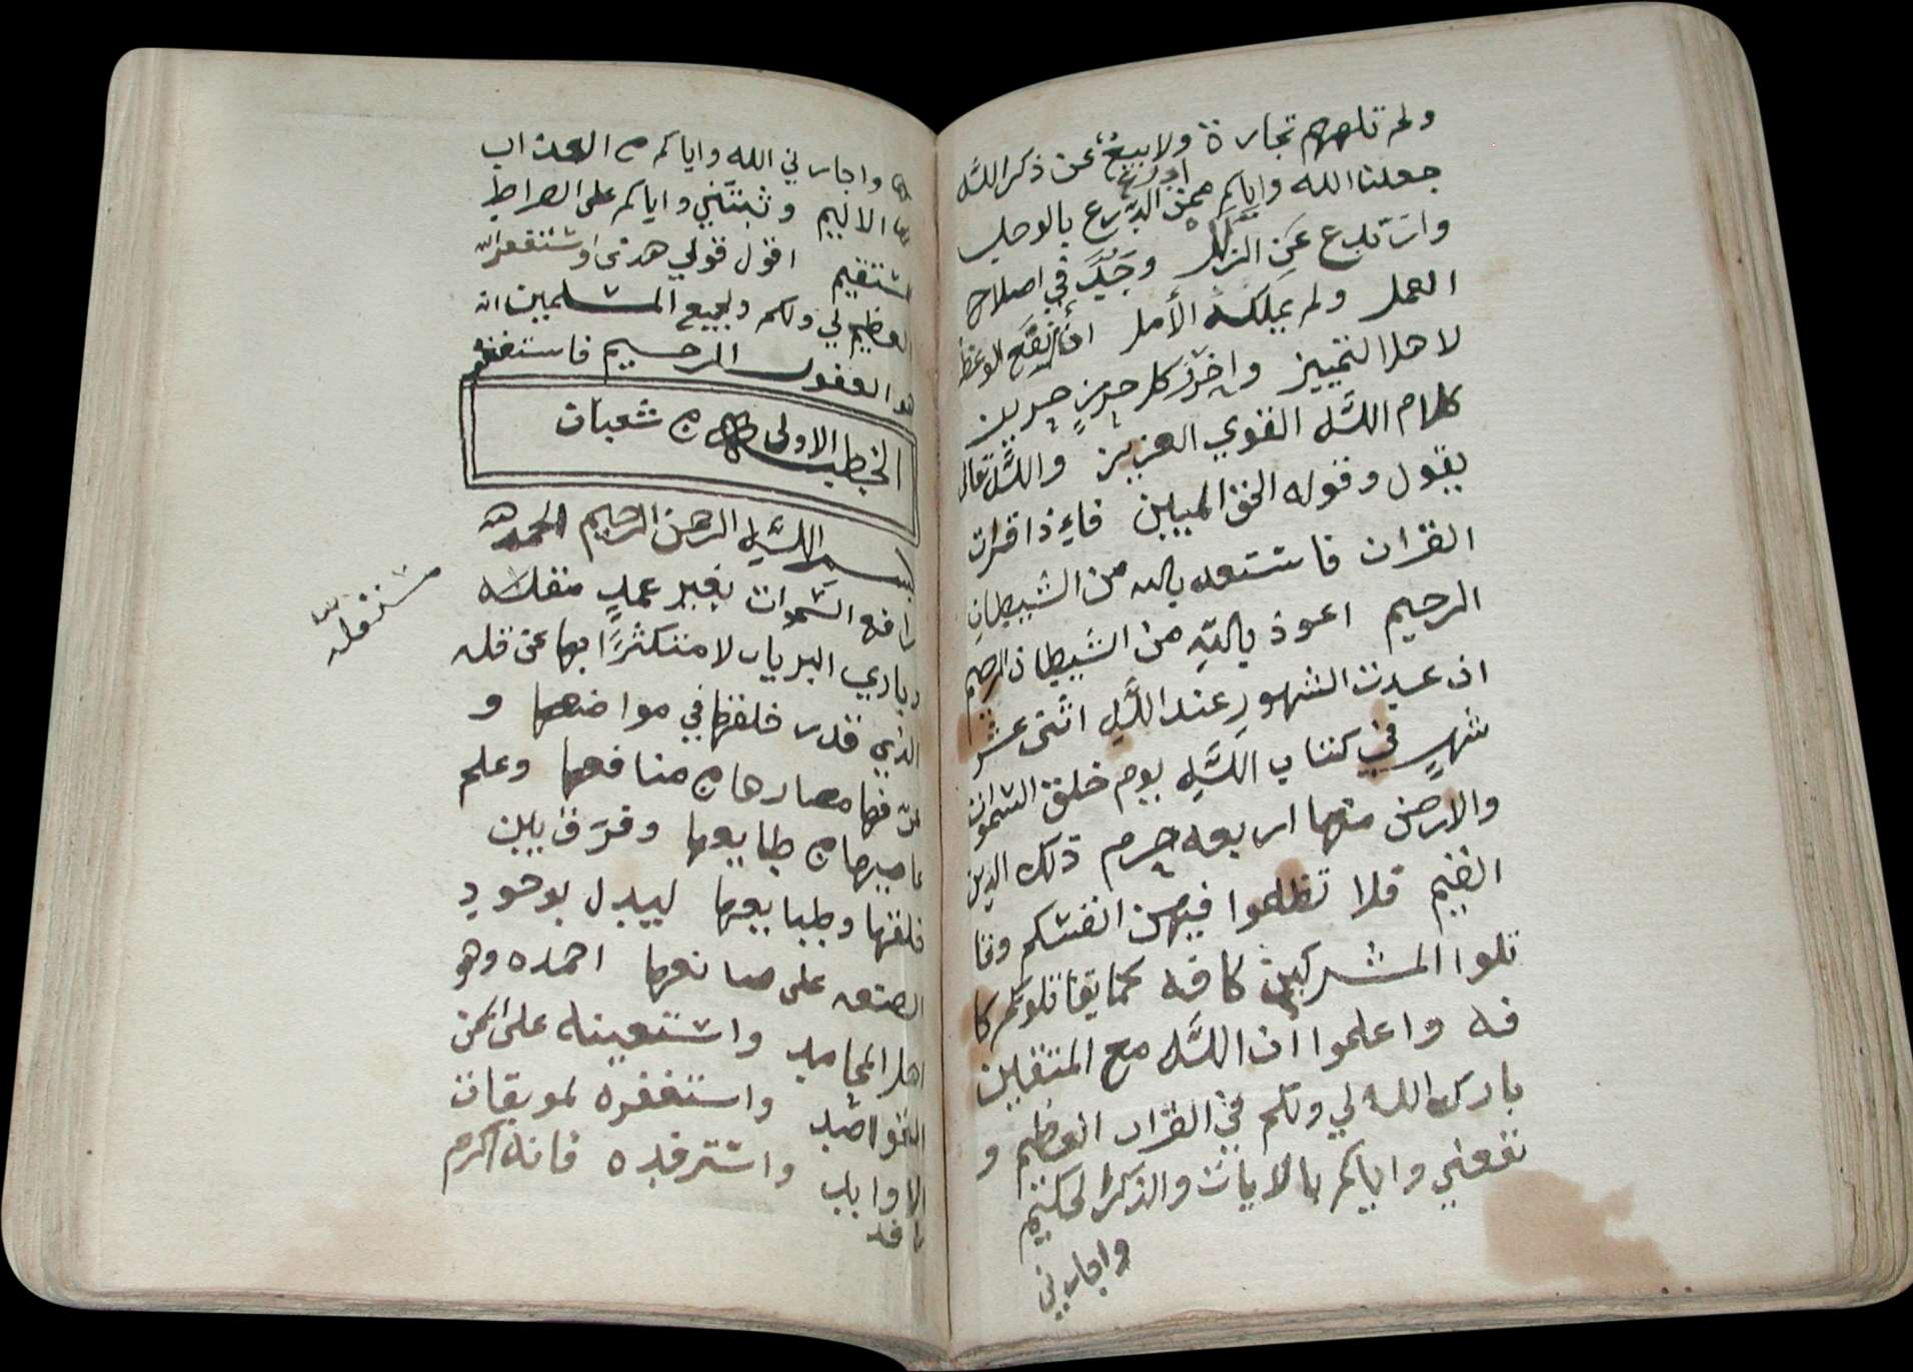 ولم تلههم تجارة ولا بيع عن ذكر الله
جعلنا الله واياكم ممن ادرع بالوجل
وارتدع عن الزلل وجد في اصلاح
العمل ولم يملكه الأمل ان انفع الوعظ
لاهل التمييز واحرز كل حرز حريز
كلام الله القوي العزيز والله تعالى
يقول وقوله الحق المبين فاءذا قرات
القران فاستعد بالله من الشيطان
الرجيم اعوذ بالله من الشيطان الرجيم
ان عدت الشهور عند الله اثنى عشر
شهر في كتاب الله يوم خلق السموات
والارض منها اربعه حرم ذلك الدين
القيم فلا تظلموا فيهن انفسكم وقا
تلوا المشركين كافه كما يقاتلوكم كا
فه واعلموا ان الله مع المتقين
بارك الله لي ولكم في القران العظيم و
نفعني واياكم بالايات والذكر الحكيم
واجارني
واجارني الله واياكم من العذاب
الاليم وثبتني واياكم على الصراط
المستقيم اقول قولي هدى واستغفر الله
العظيم لي ولكم ولجميع المسلمين انه
هو الغفور الرحيم فاستغفر
الخطبه الاولى من شعبان
بسم الله الرحمن الرحيم الحمد لله
رافع السموات بغير عمد متقله
مستقله
وباري البريات لا متكثرًا بها عن قله
الذي قدر خلقها في مواضعها و
عرفها مضارها من منافعها وعلم
من طبايعها وفرق بين
خلقها وطبايعها ليدل بوجود
الصنعه على صانعها احمده وهو
اهل المحامد واستعينه على
القواصد واستغفره لموبقات
الاوابد واسترفده فانه اكرم
رافد